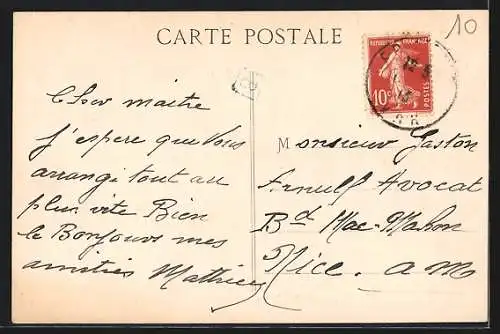 CARTE POSTALE
10
REPUBLIQUE FRANÇAISE
10c
POSTES
Cher maitre
j'espere que vous
arrangi tout au
plus vite Bien
le Bonjours mes
amitiés Mathieu
Monsieur Gaston
Arnulf Avocat
Bd Mac-Mahon
Nice. A M